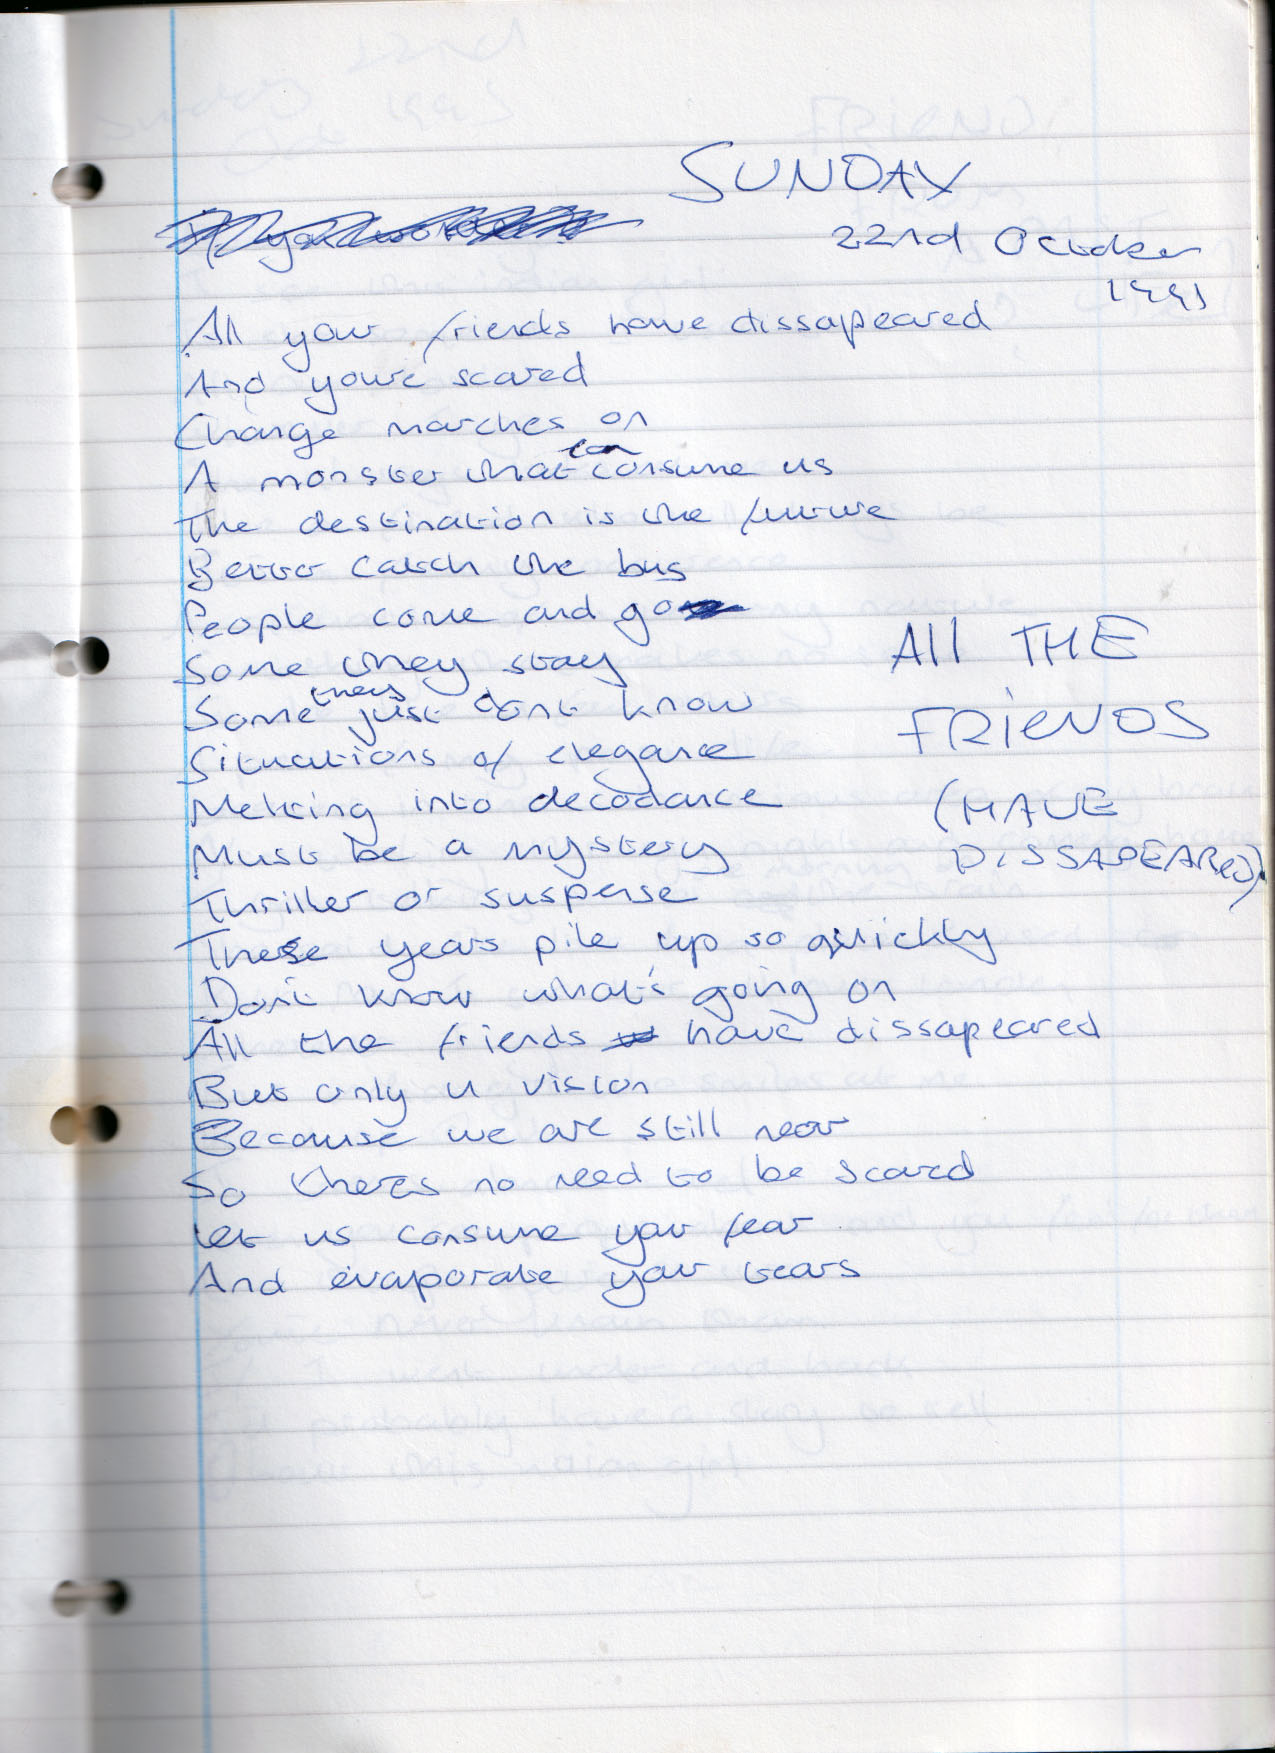 SUNDAY
22nd October
1995
All your friends have dissapeared
And youre scared
Change marches on
A monster that can consume us
The destination is the future
Better catch the bus
People come and go
Some they stay
Some they just dont know
Situations of elegance
Melting into decadance
Must be a mystery
Thriller or suspense
These years pile up so quickly
Don't know what's going on
All the friends have dissapeared
But only a vision
Because we are still near
So theres no need to be scared
Let us consume your fear
And evaporate your tears
All THE
FRiENDS
(HAVE
DiSSAPEAReD)